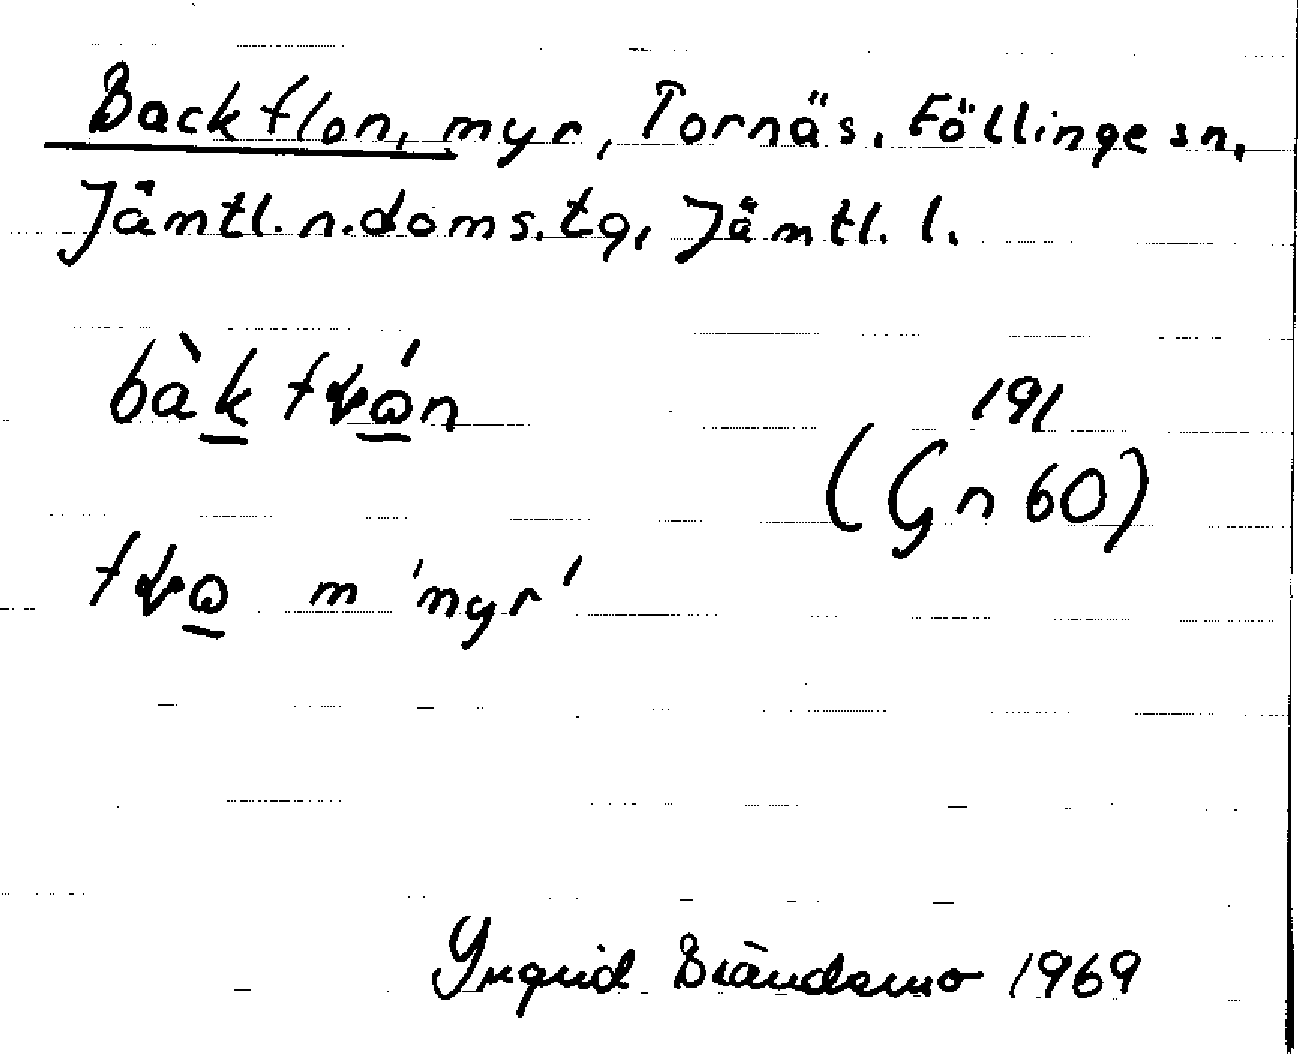 Backflon, myr, Tornäs. Föllinge sn,
Jämtl. n. doms. tg, Jämtl. l.
191
(Gn 60)
m 'myr'
Yngrid Brändamo 1969